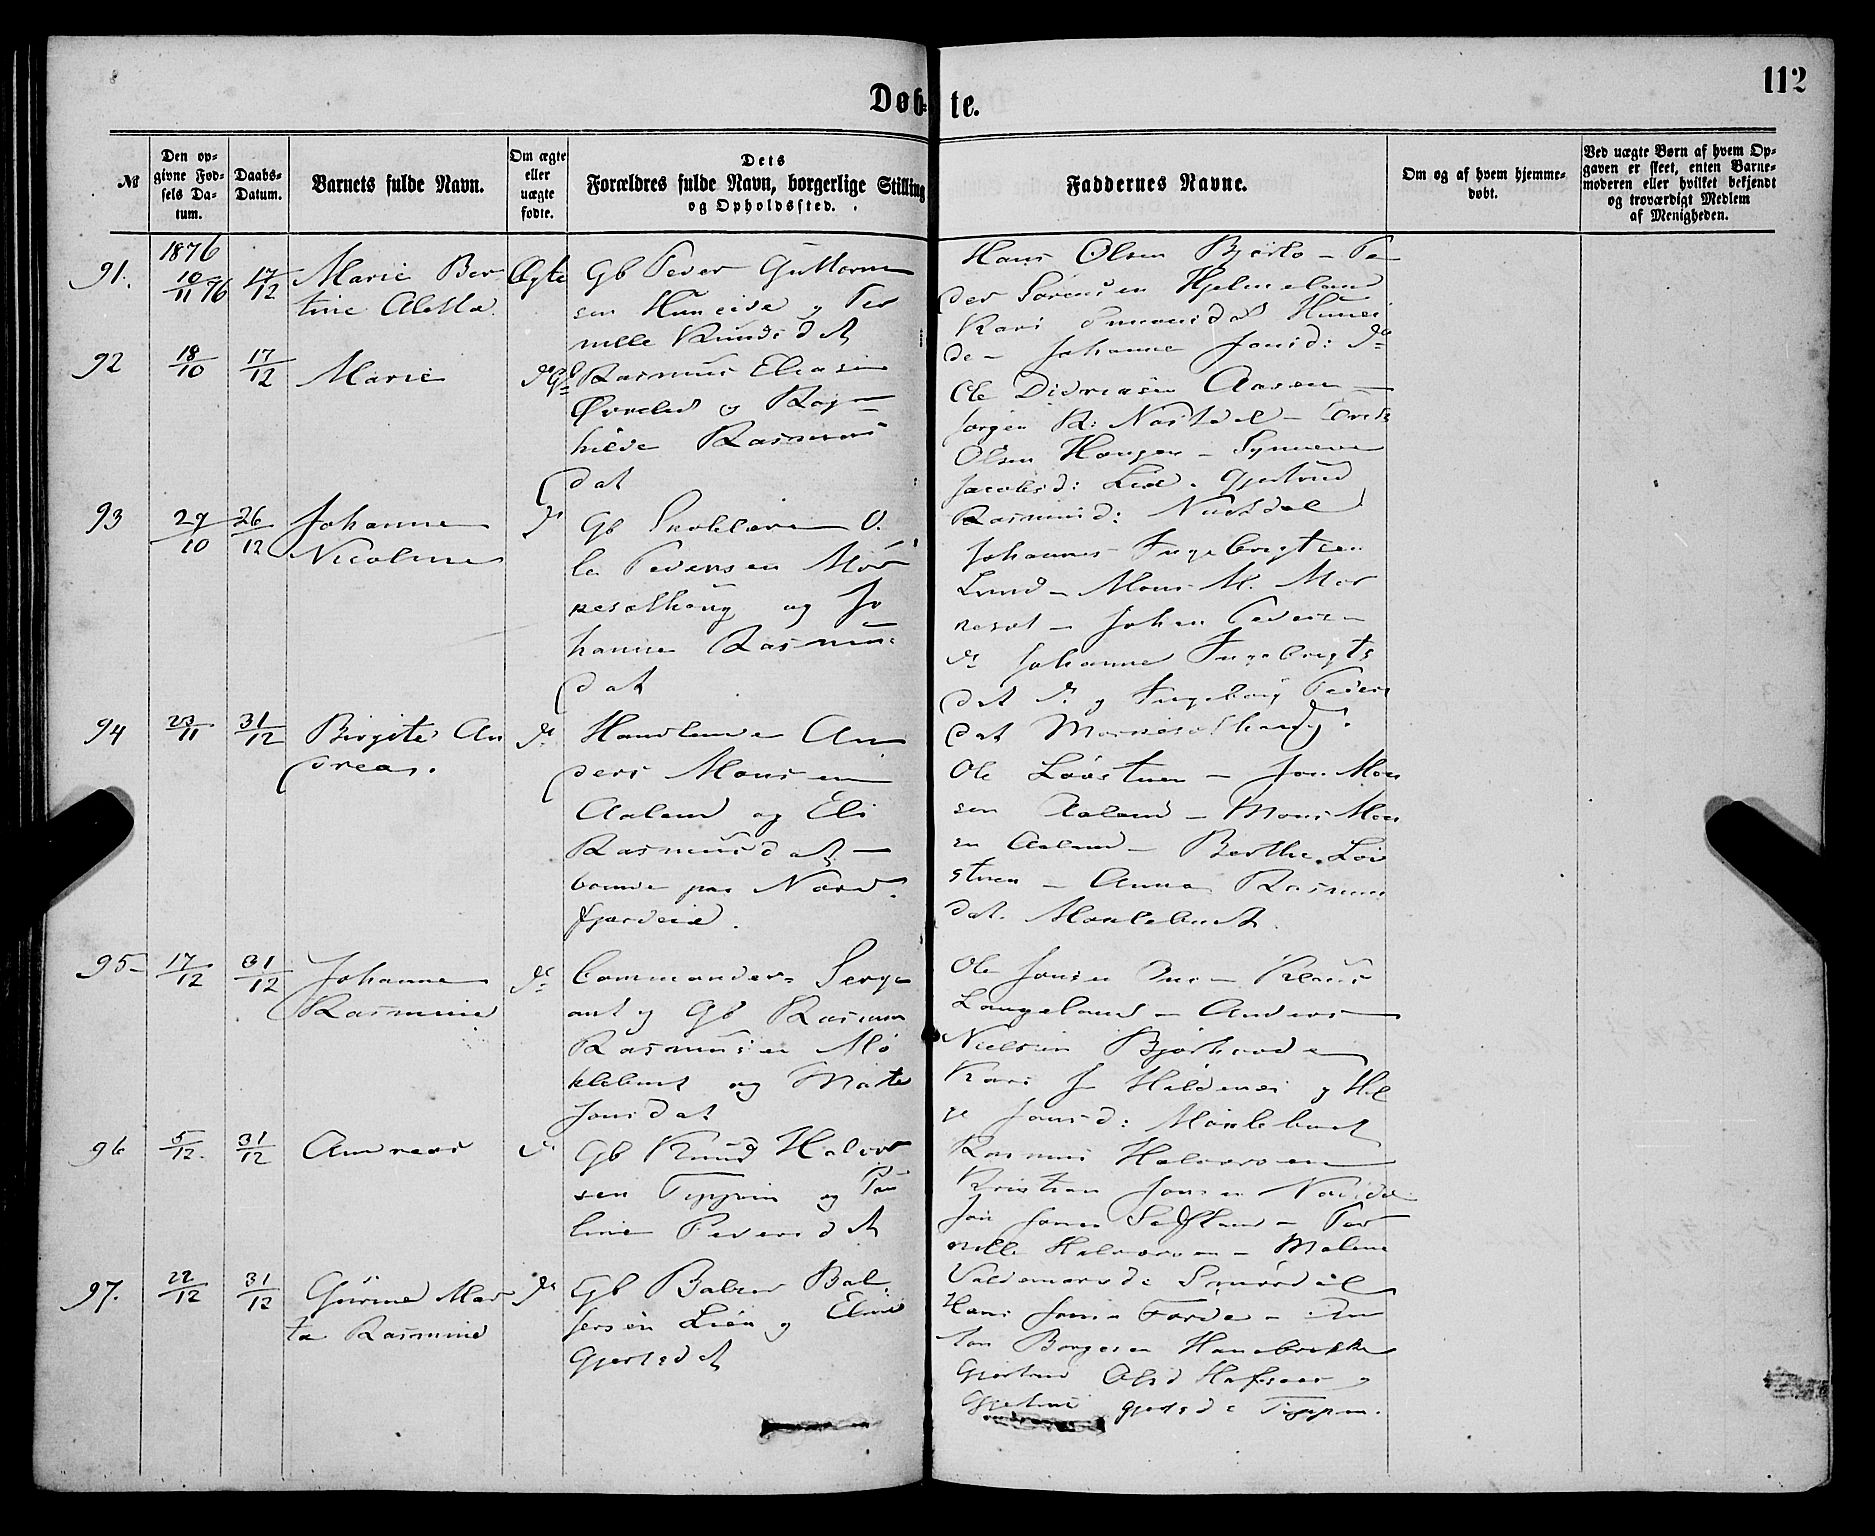 112
Døb- te.
№
Den op-
givne Fød-
sels Da-
tum.
Daabs-
Datum.
Barnets fulde Navn.
Om ægte
eller
uægte
fødte.
Dets
Forældres fulde Navn, borgerlige Stilling
og Opholdssted.
Faddernes Navne.
Om og af hvem hjemme-
døbt.
Ved uægte Børn af hvem Op-
gaven er skeet, enten Barne-
moderen eller hvilket bekjendt
og troværdigt Medlem
af Menigheden.
1876
91. 10/11 76 17/12 Marie Ber
tine Aletta
Ægte
Gb Peder Guttorm
sen Huneide og Per
nille Knudsdat
Hans Olsen Bjørlo - Pe
der Sørensen Hjelmeland
Kari Hunei
de - Johanne Jonsd: do
92 18/10 17/12 Marie
do Gb Rasmus Eliasen
Øvrelid og Ragn
hilde Rasmus
dat
Ole Didriksen Aasen -
Jørgen R: Nøstdal -
Olsen Haugen - Synneve
Jacobsd: Lid - Gjertrud
Rasmusd: Nøstdal
93 29/10 26/12 Johanne
Nicoline
do
Gb Skolelærer O
le Pedersen Mor
resethoug og Jo
hanne Rasmus
dat
Johannes Ingebrigtsen
Lund - Mons M. Mor
reset - Johan Peders -
do Johanne Ingebrigts
dat do og Ingeborg Peders
dat Morresethoug.
94 23/11 31/12 Birgite An
dreas.
do
Handlende An
ders Monsen
Aaland og Eli
Rasmusdat -
boende paa Nord
fjordeid.
Ole Løvstuen - Jon Mon
sen Aaland - Mons Mon
sen Aaland - Berthe Løv
stuen - Anna Rasmus
dat. Myklebust
95 17/12 31/12 Johanne
Rasmine
do
Commander Serge
ant og Gb Rasmus
Rasmusen My
klebust og Marte
Jonsdat
Ole Jonsen - Klaus
Langeland - Anders
Nielsen Bjørhovde
Kari J Hildenes og Hel
ge Jonsd: Myklebust
96 5/12. 31/12 Andreas
do
Gb Knud Halvor
sen Typpen og Pau
line Pedersdat
Rasmus Halvorsen
Kristian Jonsen
Jon Jonsen - Per
nille Halvorsen - Malene
Valdemarsd:
97. 22/12 31/12 Gurine Mar
ta Rasmine
do
Gb Balzer Bal
sersen Lien og Eline
Gjertsdat
Hans Jonsen Førde - An
ton Borgesen
Gjertrud
Gjertine Gjertsd: Typpen.